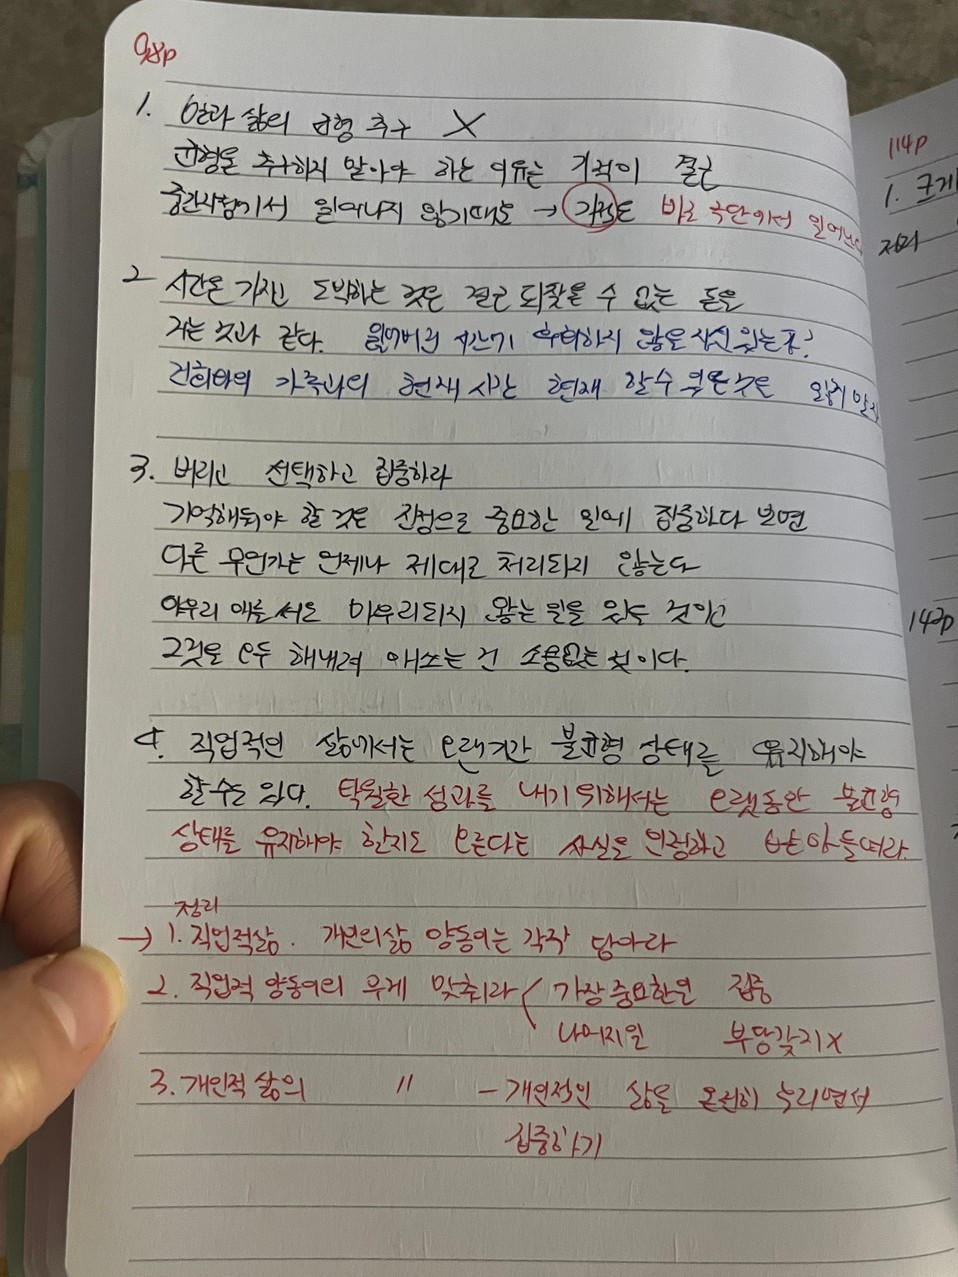 98p
1. 일과 삶의 균형 추구 X
균형을 추구하지 말아야 하는 이유는 기적이 결코
중간지점에서 일어나지 않기때문 → 기적은 바로 극단에서 일어난다
2 시간은 가지고 도박하는 것은 결코 되찾을 수 없는 돈을
거는 것과 같다. 잃어버린 시간이 후회하지 않을 자신 있는가?
건희와의 가족과의 현재 시간 현재 할 수 있는 것을 잊지 말자
3. 버리고 선택하고 집중하라
기억해둬야 할 것은 진정으로 중요한 일에 집중하다 보면
다른 무언가는 언제나 제대로 처리되지 않는다
아무리 애를 써도 마무리되지 않는 일은 있을 것이고
그것을 모두 해내려 애쓰는 건 소용없는 것이다.
4. 직업적인 삶에서는 오랜기간 불균형 상태를 유지해야
할수도 있다. 탁월한 성과를 내기 위해서는 오랫동안 불균형
상태를 유지해야 한지도 모른다는 사실을 인정하고 받아들여라.
정리
→ 1. 직업적삶. 개인의삶 양동이는 각각 담아라
2. 직업적 양동이의 무게 맞춰라 가장 중요한일 집중
나머지일 부담갖지X
3. 개인적 삶의 〃 - 개인적인 삶을 온전히 누리면서
집중하기
114p
1. 크게
142p